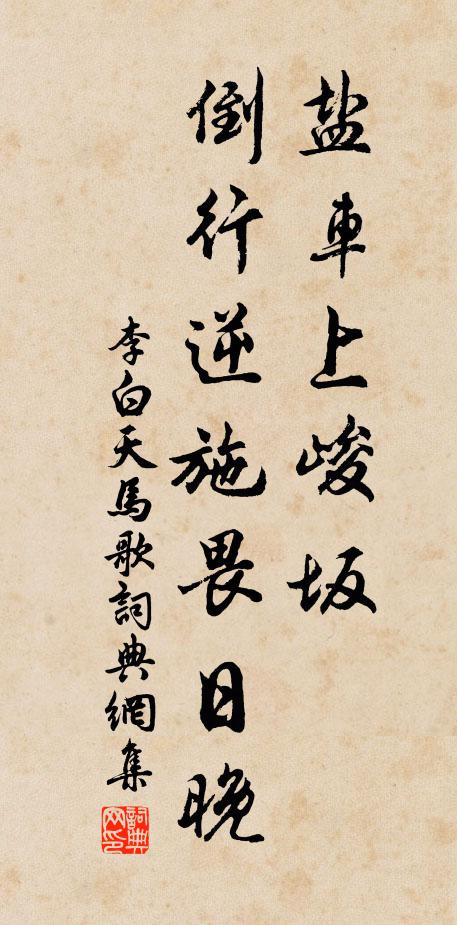 盐車上峻坂
倒行逆施畏日晚
李白天馬歌詞典網集
詞典网印